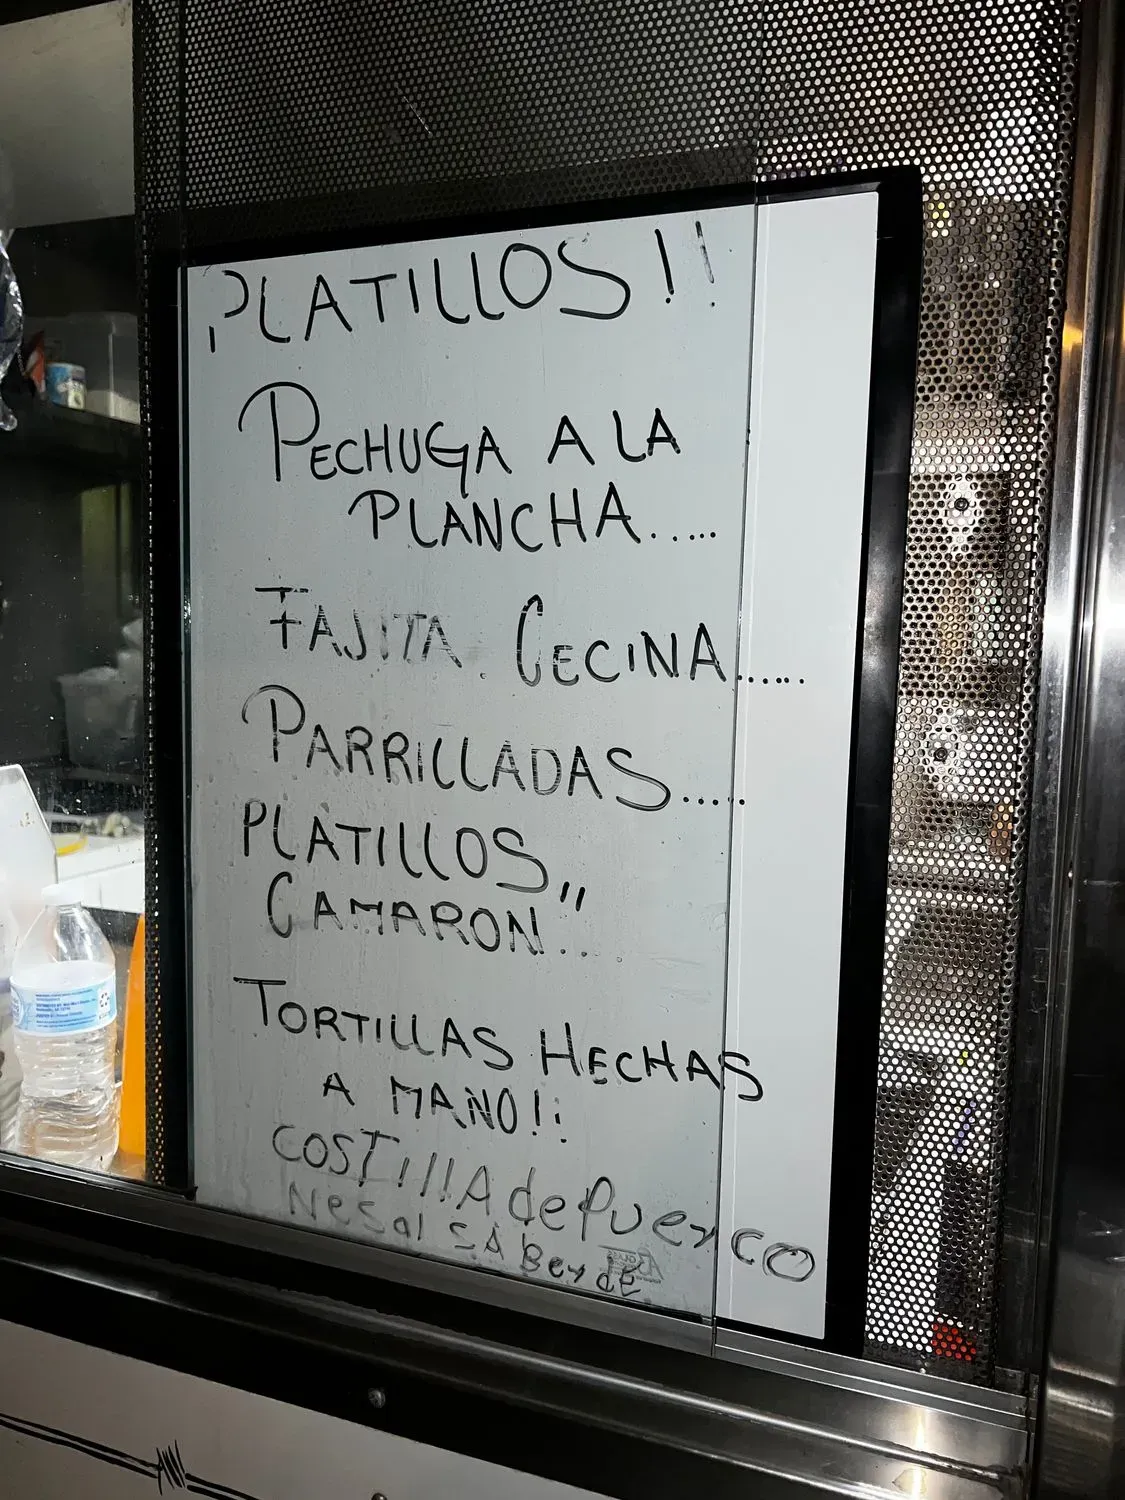 ¡PLATILLOS!!
PECHUGA A LA
PLANCHA.....
FAJITA. CECINA.....
PARRILLADAS.....
PLATILLOS,,
CAMARON!..
TORTILLAS HECHAS
A MANO!¡
COSTIllA de PuerCO
NeSal SA BerdE